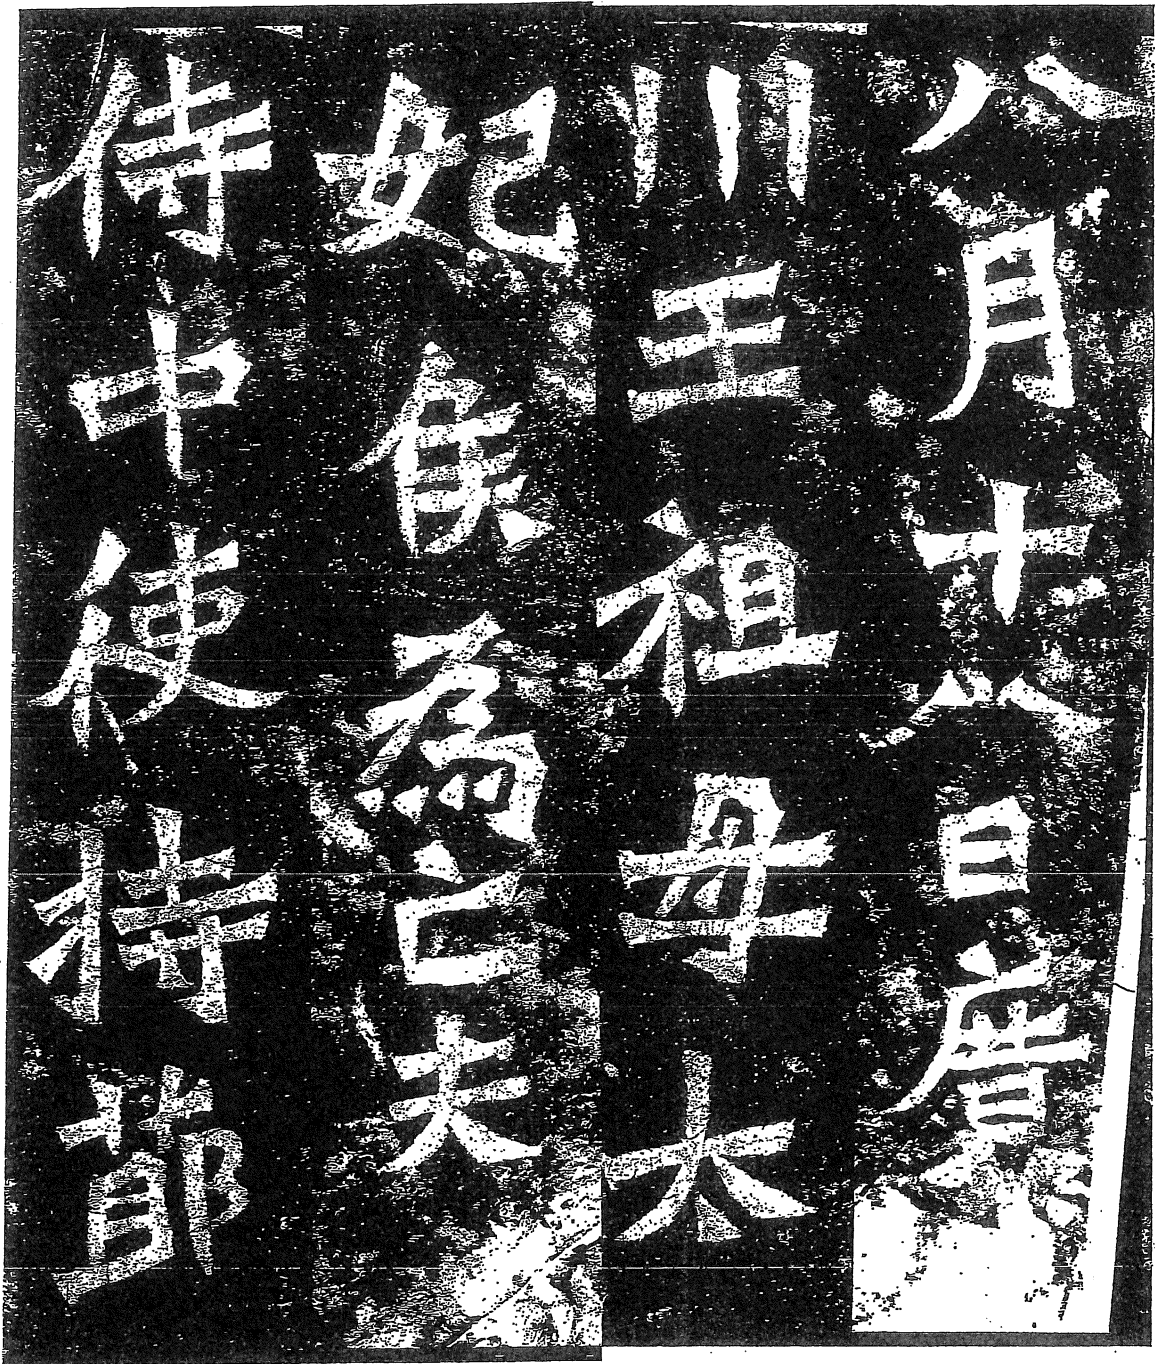 八月十八日廣
川王祖母太
妃侯為亡夫
侍中使持節